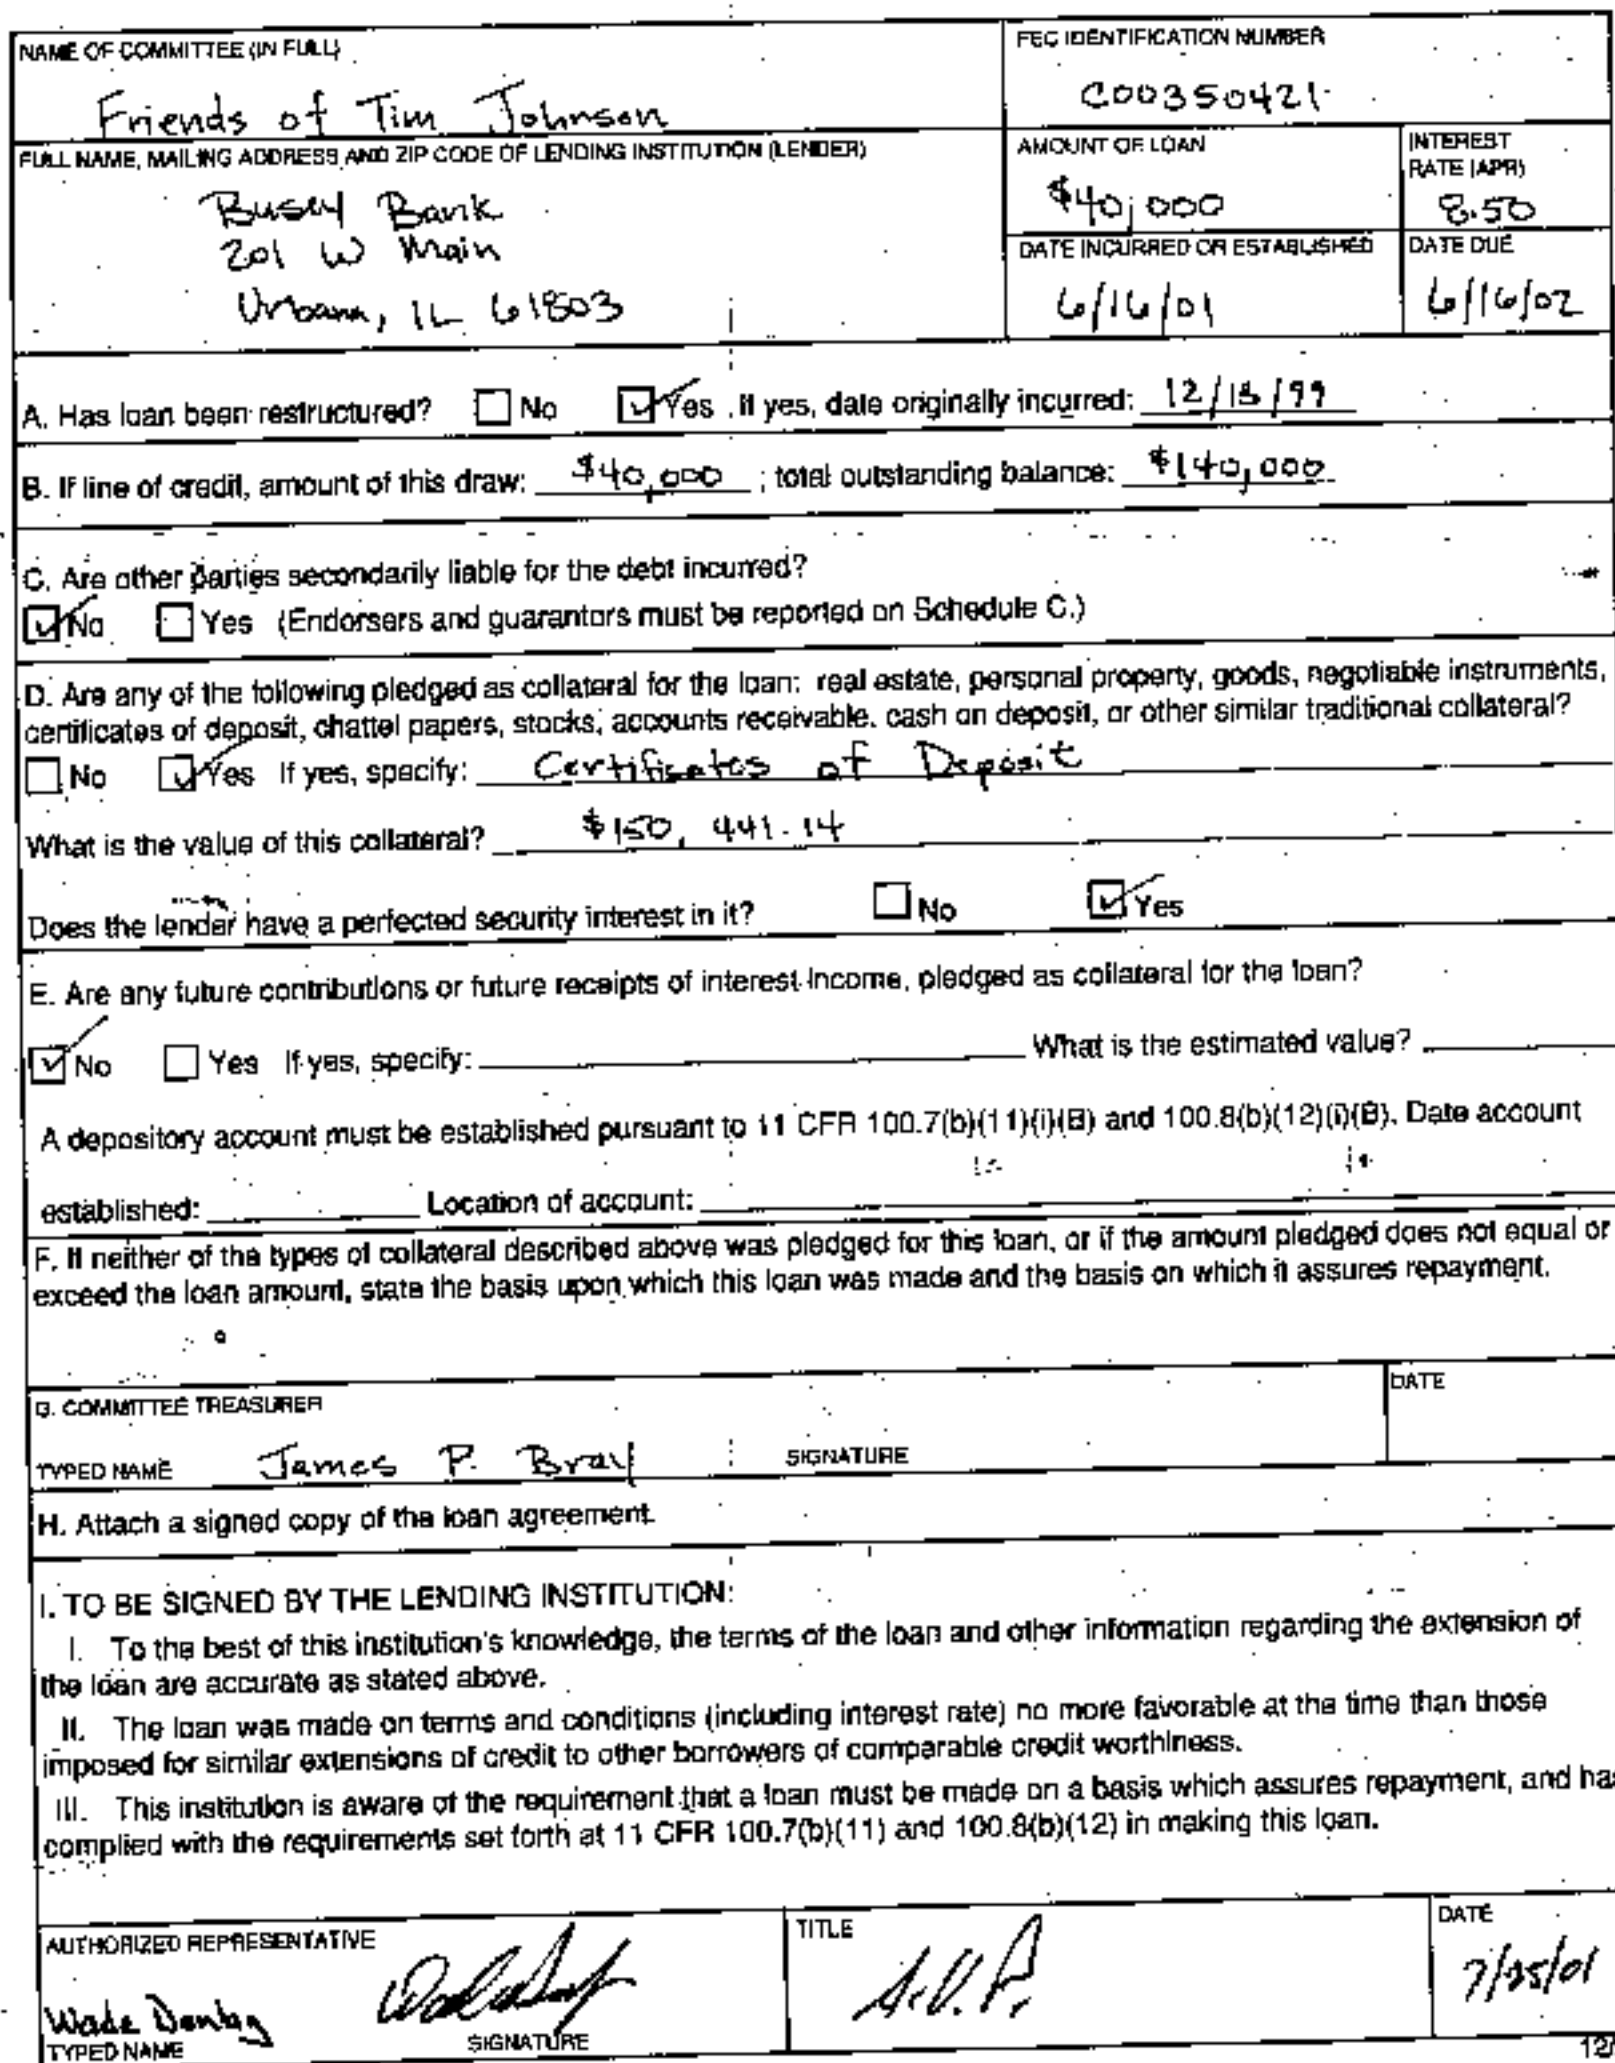 NAME OF COMMITTEE (IN FULL)
Friends of Tim Johnson
FEC IDENTIFICATION NUMBER
C00350421
FULL NAME, MAILING ADDRESS AND ZIP CODE OF LENDING INSTITUTION (LENDER)
Busey Bank
201 W Main
Urbana, IL 61803
AMOUNT OF LOAN
$40,000
INTEREST
RATE (APR)
8.50
DATE INCURRED OR ESTABLISHED
6/16/01
DATE DUE
6/16/02
A. Has loan been restructured? No Yes If yes, date originally incurred: 12/15/99
B. If line of credit, amount of this draw: $40,000 ; total outstanding balance: $140,000
C. Are other parties secondarily liable for the debt incurred?
No Yes (Endorsers and guarantors must be reported on Schedule C.)
D. Are any of the following pledged as collateral for the loan: real estate, personal property, goods, negotiable instruments,
certificates of deposit, chattel papers, stocks, accounts receivable, cash on deposit, or other similar traditional collateral?
No Yes If yes, specify: Certificates of Deposit
What is the value of this collateral? $150,441.14
Does the lender have a perfected security interest in it? No Yes
E. Are any future contributions or future receipts of interest income, pledged as collateral for the loan?
No Yes If yes, specify: What is the estimated value?
A depository account must be established pursuant to 11 CFR 100.7(b)(11)(i)(B) and 100.8(b)(12)(i)(B). Date account
established: Location of account:
F. If neither of the types of collateral described above was pledged for this loan, or if the amount pledged does not equal or
exceed the loan amount, state the basis upon which this loan was made and the basis on which it assures repayment.
G. COMMITTEE TREASURER
DATE
TYPED NAME James P. Bray SIGNATURE
H. Attach a signed copy of the loan agreement.
I. TO BE SIGNED BY THE LENDING INSTITUTION:
I. To the best of this institution's knowledge, the terms of the loan and other information regarding the extension of
the loan are accurate as stated above.
II. The loan was made on terms and conditions (including interest rate) no more favorable at the time than those
imposed for similar extensions of credit to other borrowers of comparable credit worthiness.
III. This institution is aware of the requirement that a loan must be made on a basis which assures repayment, and has
complied with the requirements set forth at 11 CFR 100.7(b)(11) and 100.8(b)(12) in making this loan.
AUTHORIZED REPRESENTATIVE
TITLE
DATE
Wade
TYPED NAME
SIGNATURE
7/25/01
12/